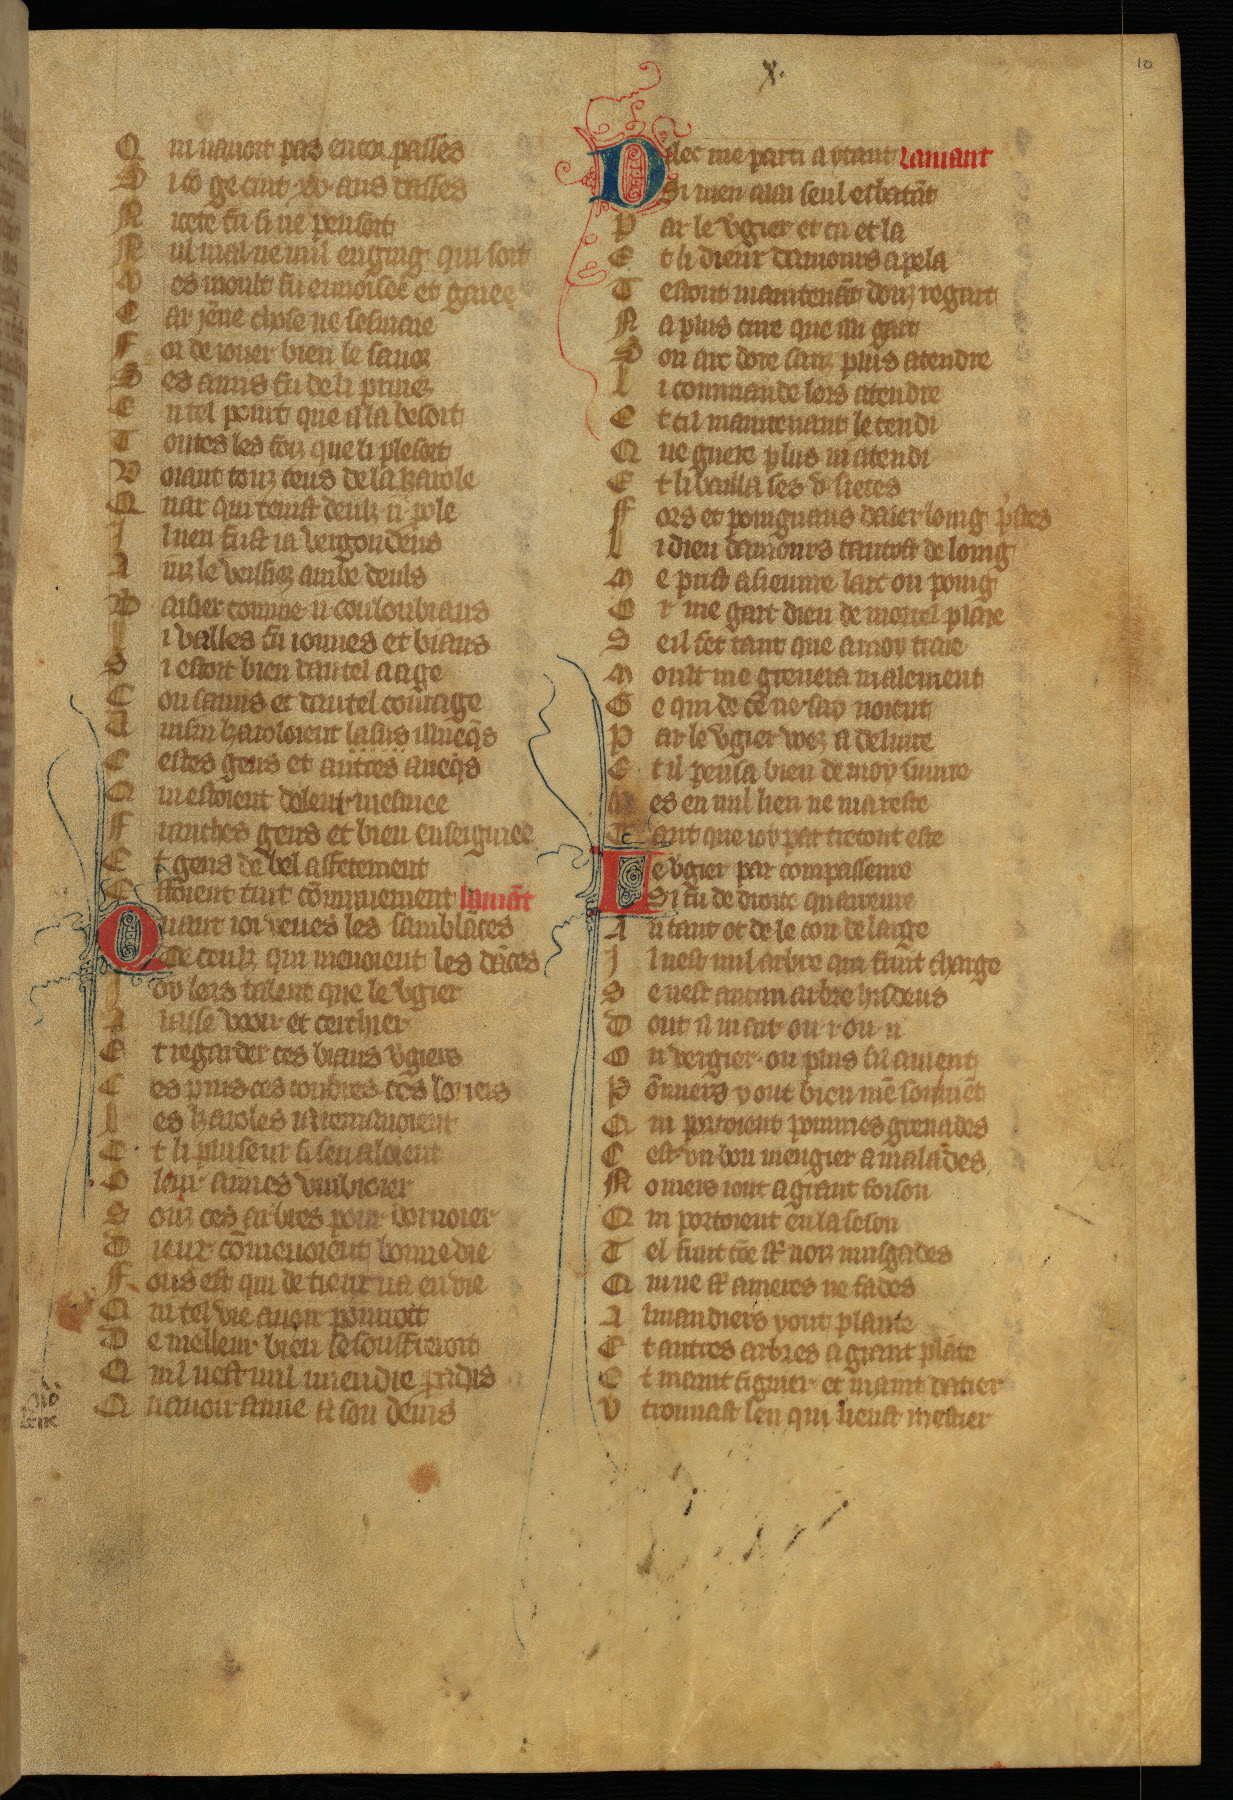 x.
10
Q ui nauoit pas encor passes
S i cō ge cuit .xv. ans dasses
N icete fu si ne pensoit
N ul mal ne nul enging qui soit
M es moult fu enuoisee et gaiee
C ar jēne chose ne sesmaie
F or de iouer bien le sauez
S es amis fu de li priuez
E n tel point que il la besoit
T outes les foiz que li plesoit
V oiant touz ceus de la karole
Q uar qui tenist deulz .ii. pole
J l nen fust ia vergondeus
A inz le veissiez ambedeuls
B aisier comme .ii. couloubiaus
L i valles fu iounes et biaus
S i estoit bien dautel aage
C on samis et dautel courage
A insin karoloient
C estes gens et autres aueqs
Q ui estoient de leur mesniee
F ranches gens et bien enseigniee
E t gens de bel affetement
E stoient tuit cōmunement lamāt
Q uant ioi veues les samblāces
De ceulz qui menoient les dāces
J oy lors talent que le vgier
A lasse veoir et cerchier
E t regarder ces biaus vgiers
C es pins ces coudres ces loriers
L es karoles ia remanoient
E t li pluseur si sen aloient
O leur amies vmbroier
S ouz ces arbres pour dornoier
D ieux cō menoient bonne vie
F ous est qui de tieux na enuie
Q ui tel vie auoir pourroit
D e meilleur bien se souffreroit
Q uil nest nul miendre paradis
Q uauoir amie a son deuis
D ilec me parti a ytant Lamant
Si men alai seul esbatāt
P ar le vgier et ca et la
E t li dieux damours apela
T estout maintenāt douz regart
N a plus cure que il li gart
S on arc dore sanz plus atendre
L i commande lors atendre
E t cil maintenant le tendi
Q ue guere plus ni atendi
E t li bailla ses .v. sietes
F ors et poignans daler loing pstes
L i dieu damours tantost de loing
M e prist a sieuure larc ou poing
O r me gart dieu de mortel plaie
S eil fet tant que a moy traie
M oult me greuera malement
G e qui de ce ne say noient
P ar le vgier voiz a deliure
E t il pensa bien de moy siuure
M es en nul lieu ne mareste
T ant que ioy par tretout este
L e vgier par compasseure
Si fu de droite quareure
A utant ot de lonc con de large
J l nest nul arbre qui fruit charge
S e nest aucun arbre hisdeus
D ont il ni ait ou .i. ou .ii.
O u vergier ou plus sil auient
P ōmiers y out bien mē souuiēt
Q ui portoient pommes grenades
C est vn bon mengier a malades
N oiers iout a grant foison
Q ui portoient en la seson
T el fruit
Q ui ne st ameres ne fades
A lmandiers y out plante
E t autres arbres a grant plāte
E t maint figuier et maint datier
V trouuast len qui lieust mestier